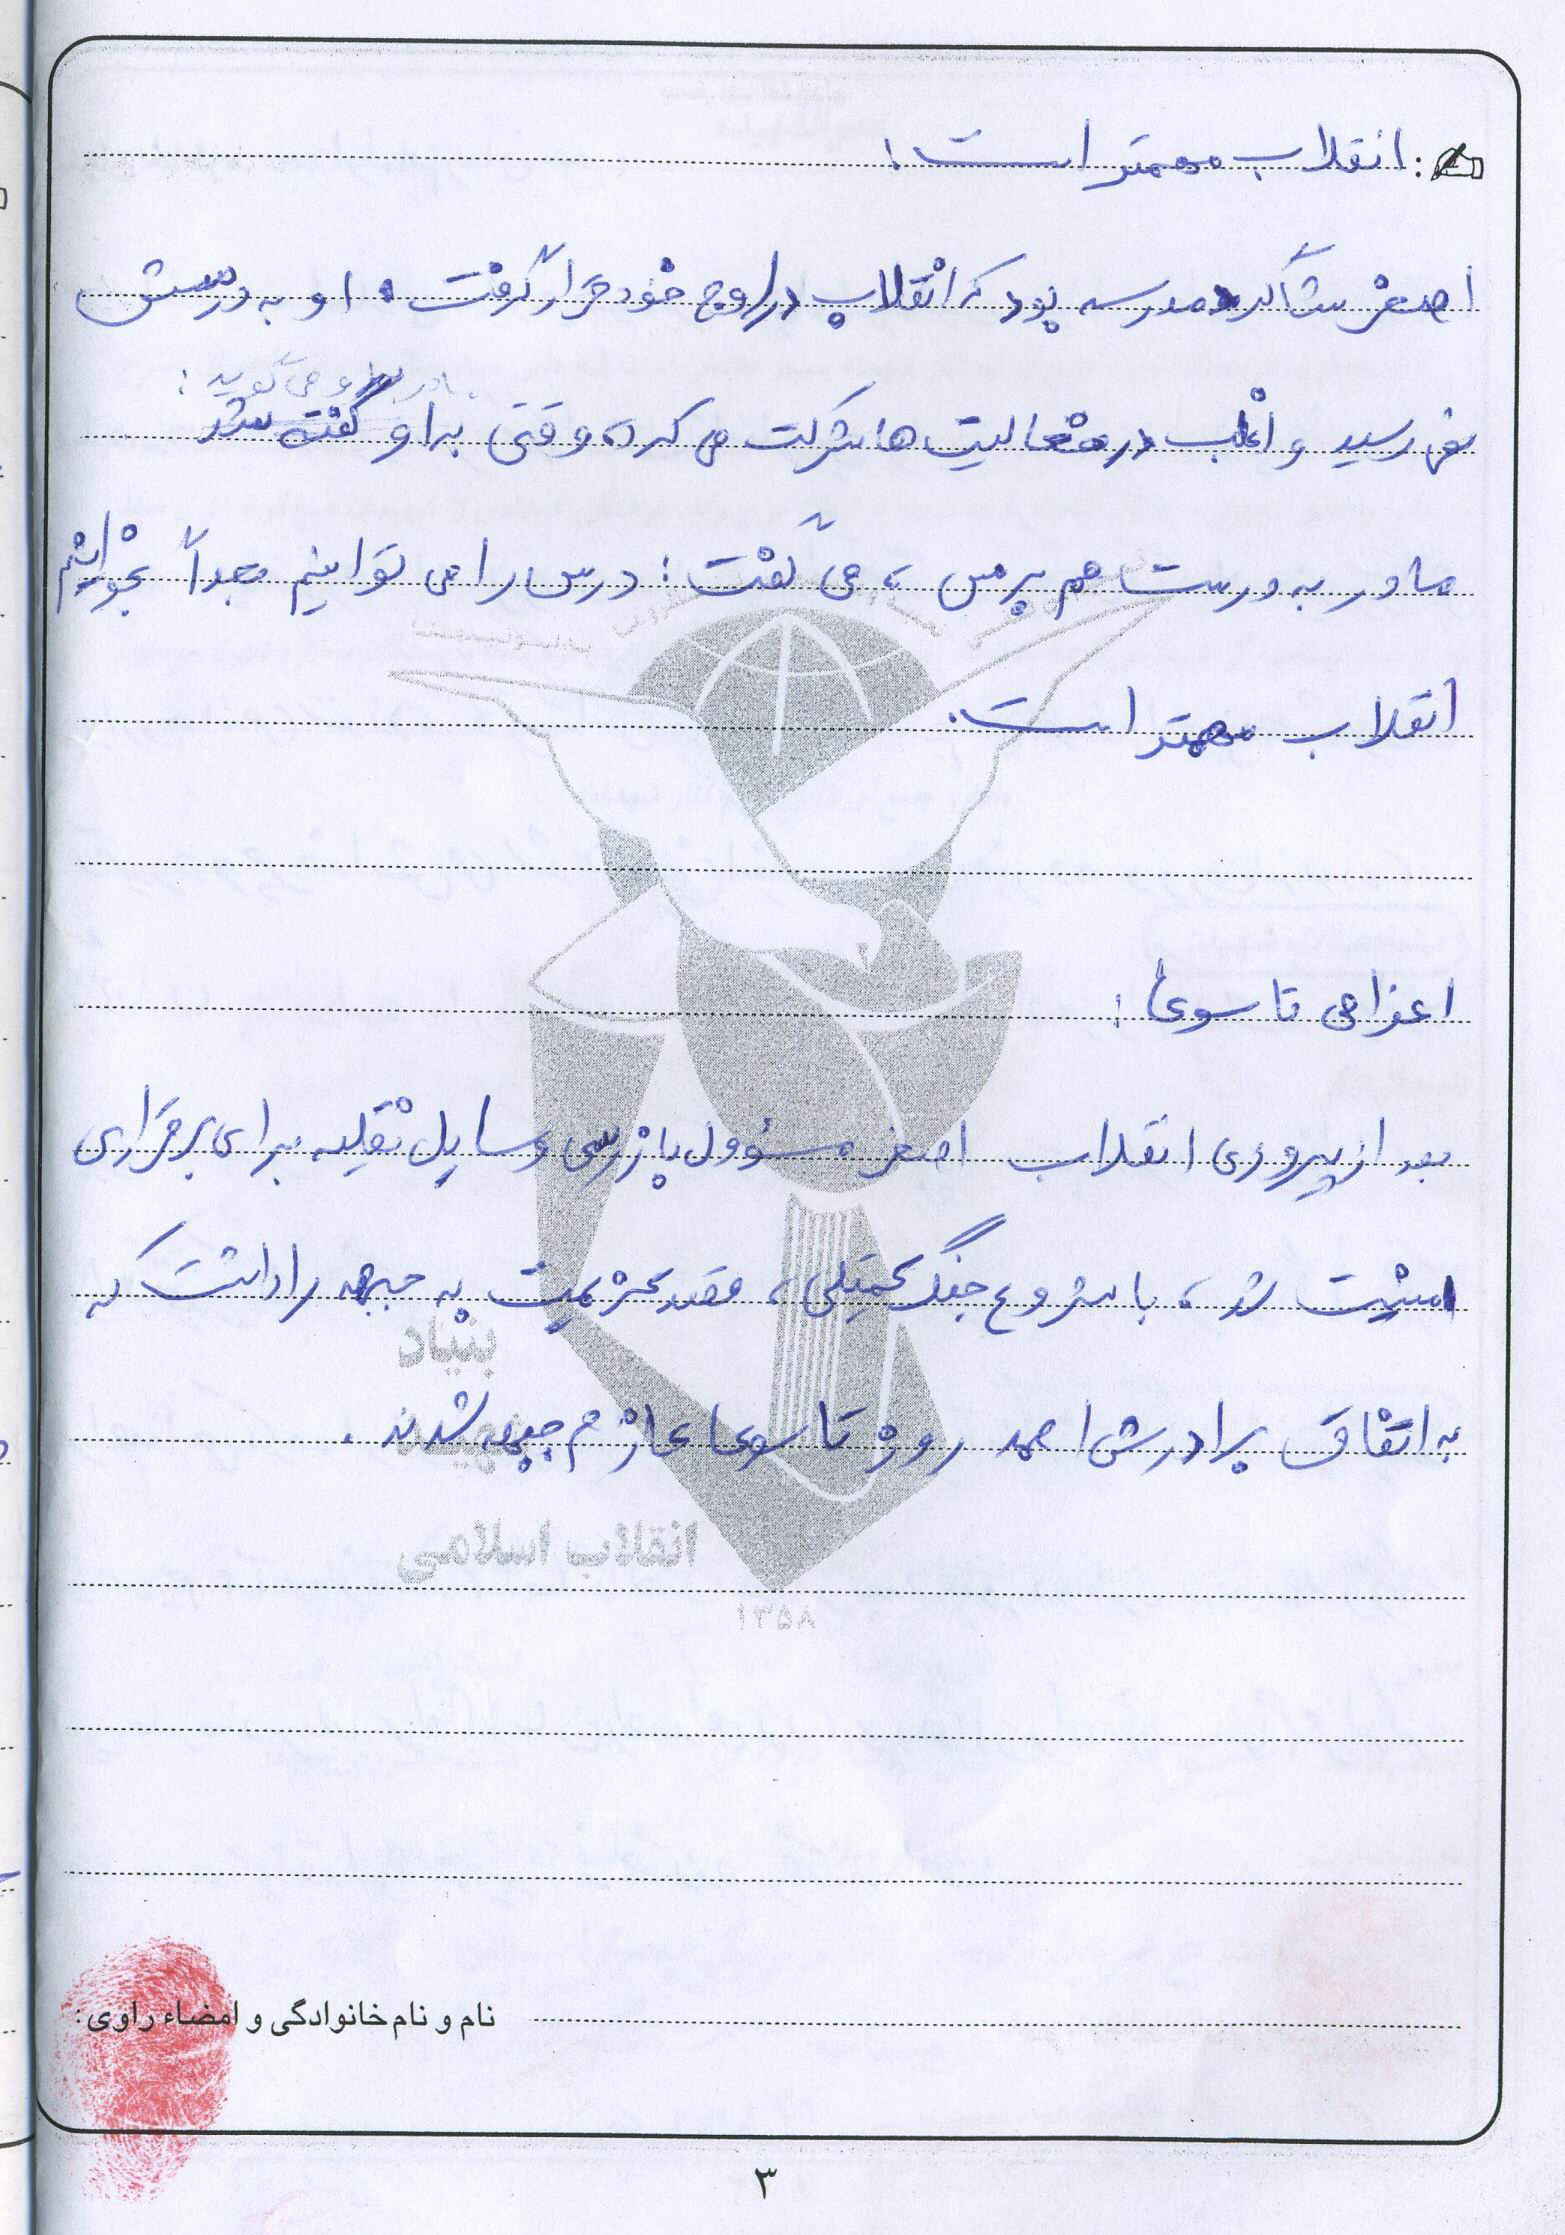 انقلاب مهمتر است:
اصغر شاگرد مدرسه بود که انقلاب در اوج خود قرار گرفت. او به درسش
نمی رسید و اغلب در فعالیت ها شرکت می کرد، وقتی به او گفته شد
مادر به او می گوید:
مادر به درست هم برس، می گفت: درس را می توانیم بعداً بخوانیم
انقلاب مهمتر است.
اعزامی تاسوعا:
بعد از پیروزی انقلاب اصغر مسئوول بازرسی وسایل نقلیه برای برقراری
امنیت شد، با شروع جنگ تحمیلی، قصد عزیمت به جبهه را داشت که
به اتفاق برادرش احمد روز تاسوعا عازم جبهه شدند.
بنیاد
انقلاب اسلامی
۱۳۵۸
نام و نام خانوادگی و امضاء راوی:
۳